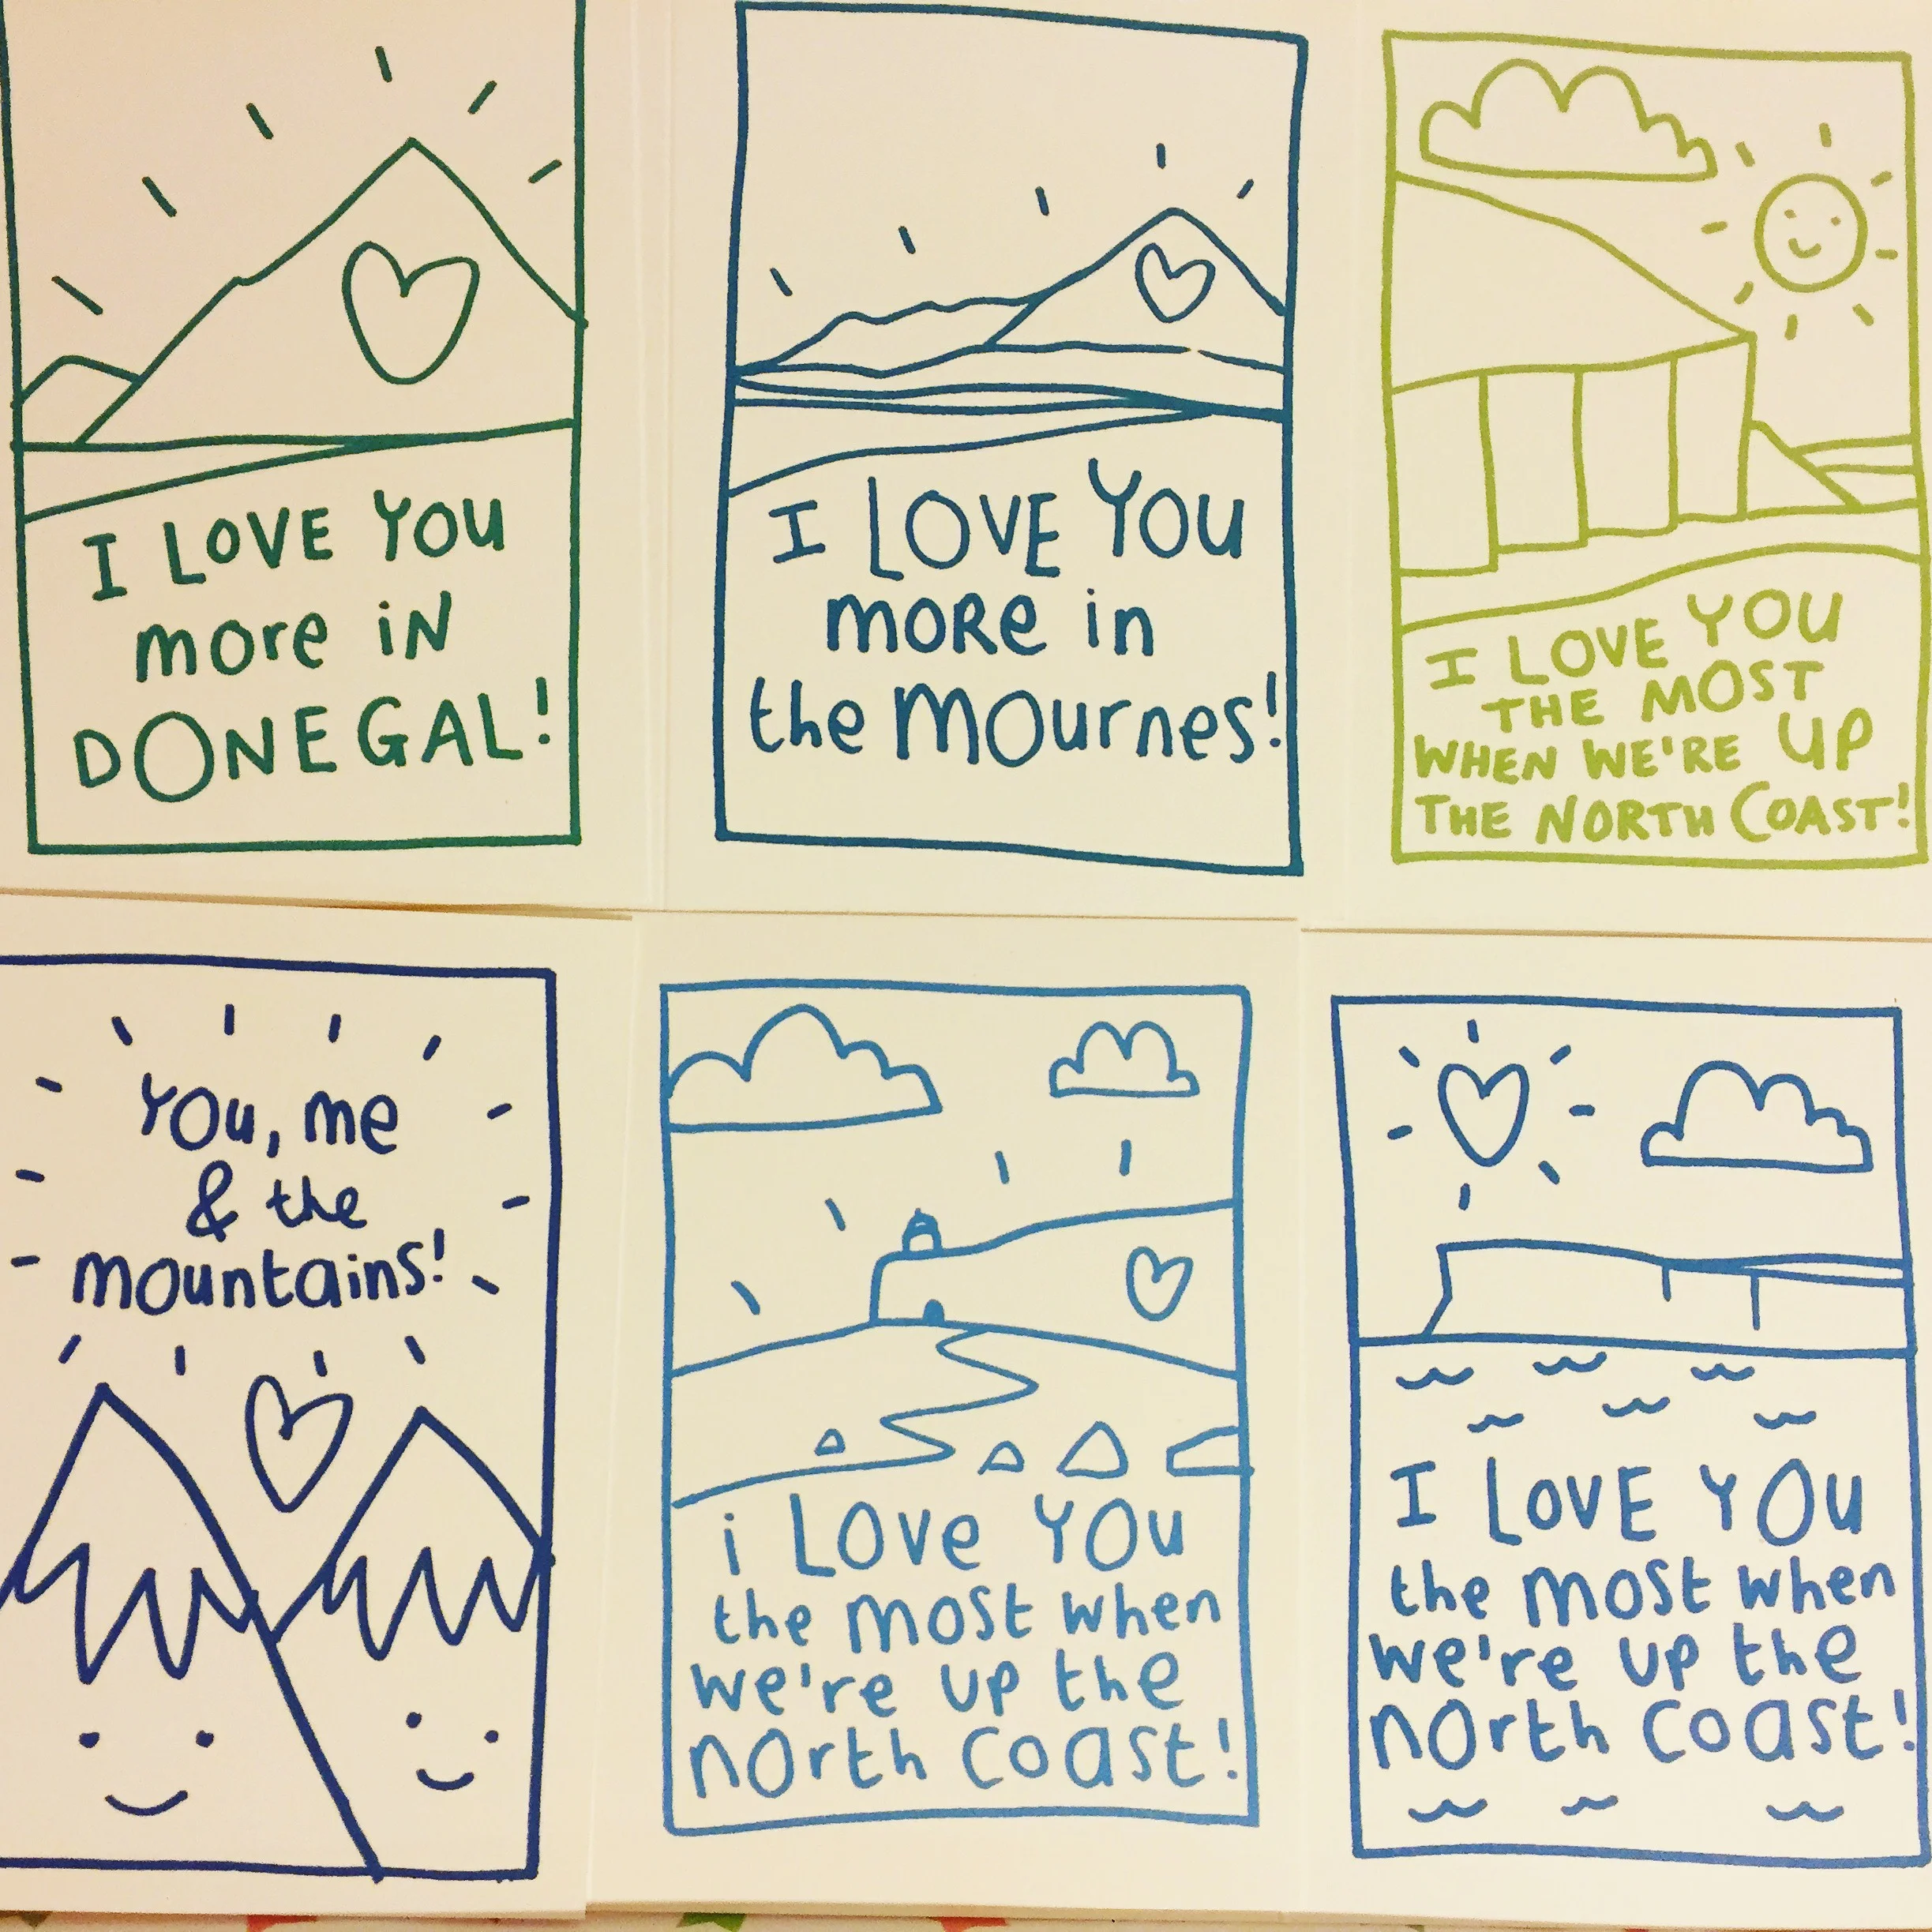 I LOVE YOU
more iN
DONEGAL!
I LOVE YOU
moRe in
the mournes!
I LOVE YOU
THE MOST
WHEN WE'RE UP
THE NORTH COAST!
You, me
& the
mountains!
i Love YOu
the most when
we're up the
north coast!
I LOVE YOU
the most when
we're up the
north coast!